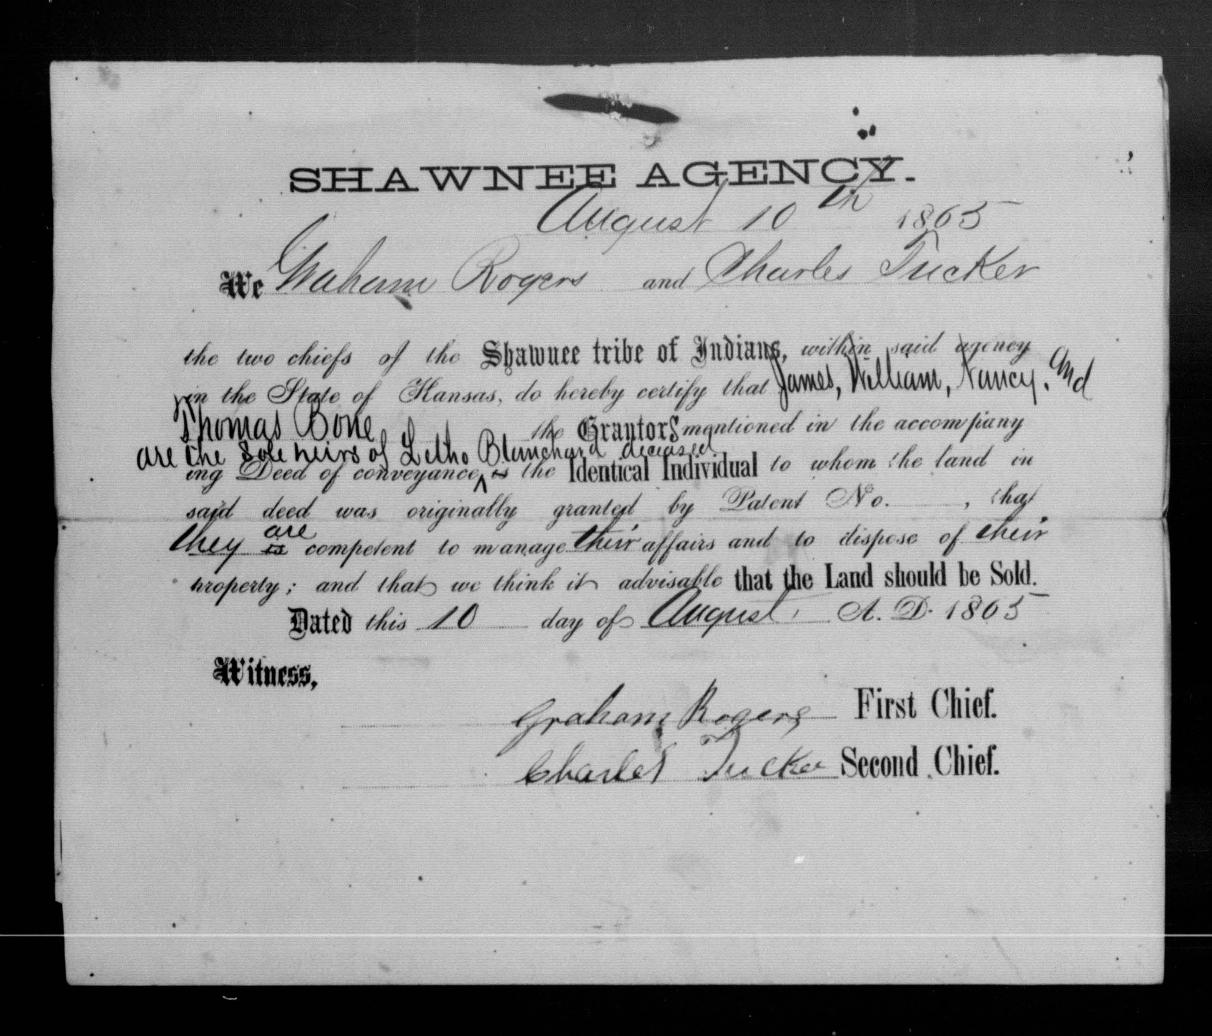 SHAWNEE AGENCY.
August 10th 1865
We Graham Rogers and Charles Tucker
the two chiefs of the Shawnee tribe of Indians, within said agency
in the State of Kansas, do hereby certify that James, William, Nancy, and
Thomas Bone the Grantors mentioned in the accompany
are the sole heirs of Letho Blanchard deceased
ing Deed of conveyance, ^ is the Identical Individual to whom the land in
said deed was originally granted by Patent No. , that
are
they is competent to manage their affairs and to dispose of their
property; and that we think it advisable that the Land should be Sold.
Dated this 10 day of August, A. D. 1865
Witness,
Graham Rogers First Chief.
Charles Tucker Second Chief.